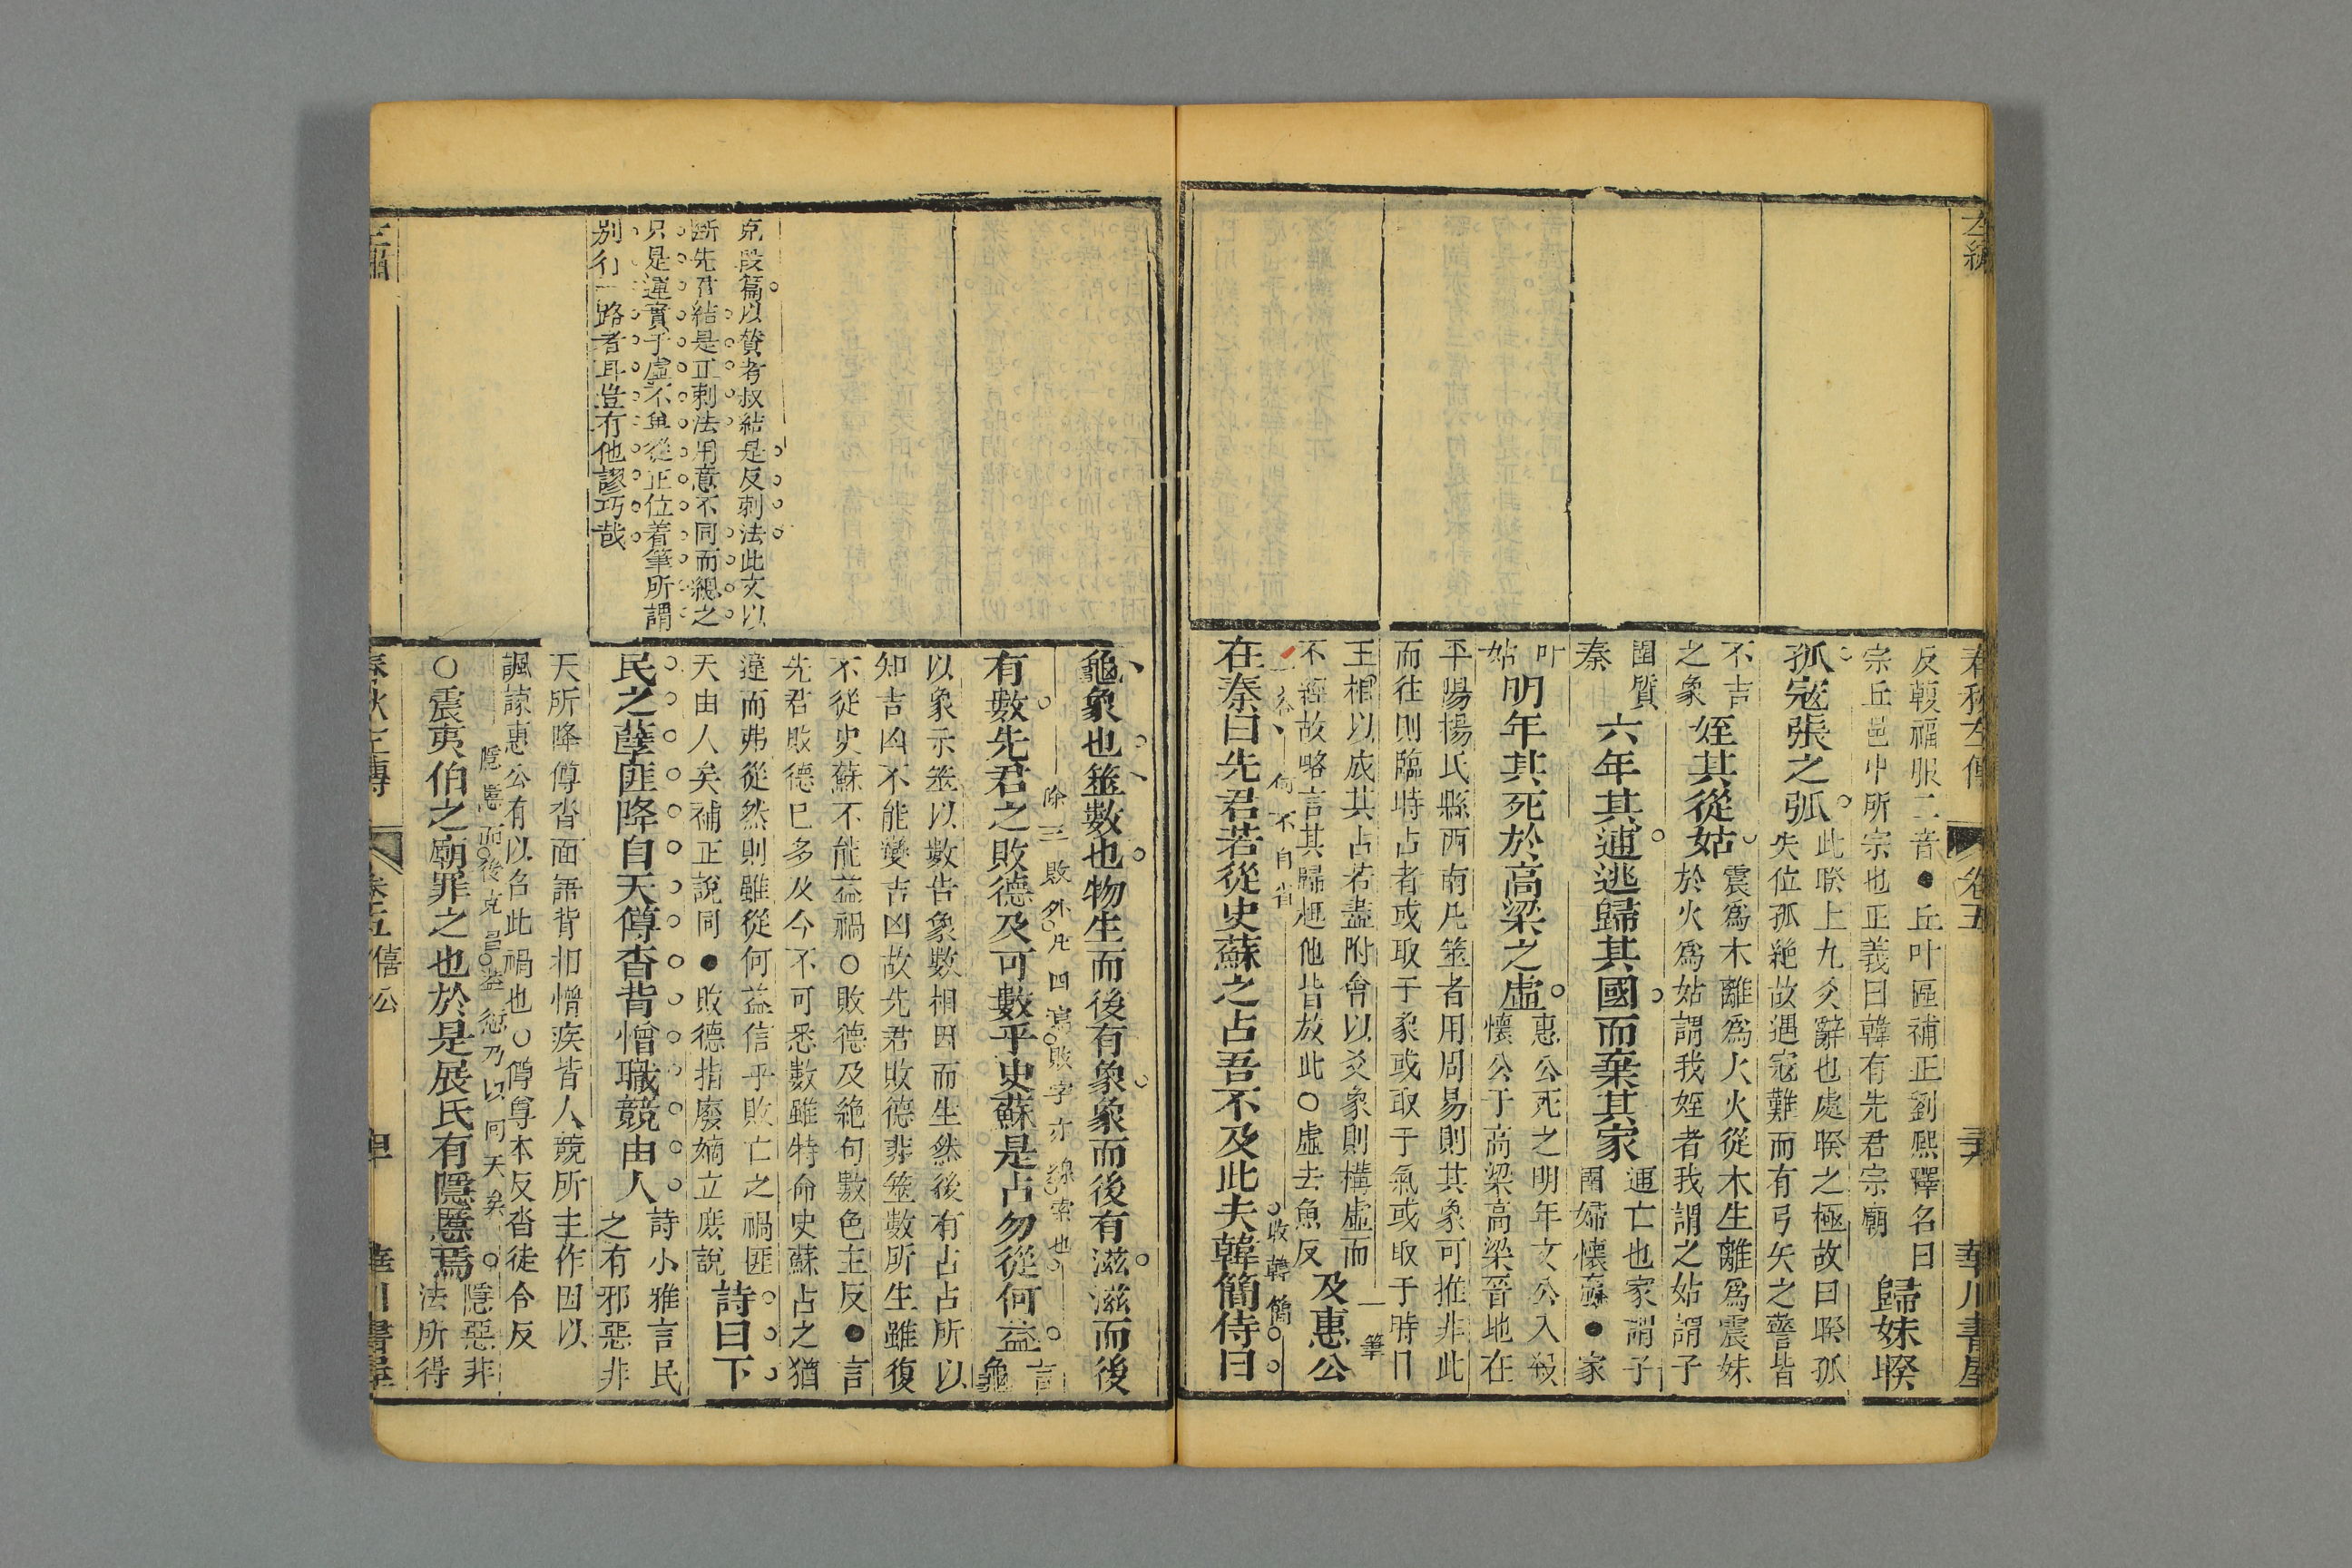 左繡
春秋左傳
卷五
華川書屋
反輹福服二音●丘叶區補正劉熙釋名曰
宗丘邑中所宗也正義曰韓有先君宗廟
歸妹睽
孤寇張之弧
此睽上九爻辭也處睽之極故曰睽孤
失位孤絶故遇寇難而有弓矢之警皆
不吉
之象
姪其從姑
震爲木離爲火火從木生離爲震妹
於火爲姑謂我姪者我謂之姑謂子
圉質
秦
六年其逋逃歸其國而棄其家
逋亡也家謂子
圉婦懷嬴●家
叶
姑
明年其死於高梁之虛
惠公死之明年文公入殺
懷公于高梁高梁晉地在
平陽揚氏縣西南凡筮者用周易則其象可推非此
而往則臨時占者或取于象或取于氣或取于時日
王相以成其占若盡附會以爻象則構虛而
不經故略言其歸趣他皆放此○虛去魚反
一筆
及惠公
何不自省
收韓簡
在秦曰先君若從史蘇之占吾不及此夫韓簡侍曰
龜象也筮數也物生而後有象象而後有滋滋而後
除三敗外凡四寫敗字亦線索也
有數先君之敗德及可數乎史蘇是占勿從何益
言
龜
以象示筮以數告象數相因而生然後有占占所以
知吉凶不能變吉凶故先君敗德非筮數所生雖復
不從史蘇不能益禍○敗德及絶句數色主反●言
先君敗德已多及今不可悉數雖特命史蘇占之猶
違而弗從然則雖從何益信乎敗亡之禍匪
天由人矣補正說同●敗德指廢嫡立庶說
詩曰下
民之孽匪降自天僔沓背憎職競由人
詩小雅言民
之有邪惡非
天所降僔沓面語背相憎疾皆人競所主作因以
諷諫惠公有以召此禍也○僔尊本反沓徒合反
○震夷伯之廟罪之也於是展氏有隱慝焉
隱惡非
法所得
克段篇以贊考叔結是反刺法此文以
斷先君結是正刺法用意不同而總之
只是運實于虛不與從正位着筆所謂
別行一路者耳豈有他謬巧哉
僖公